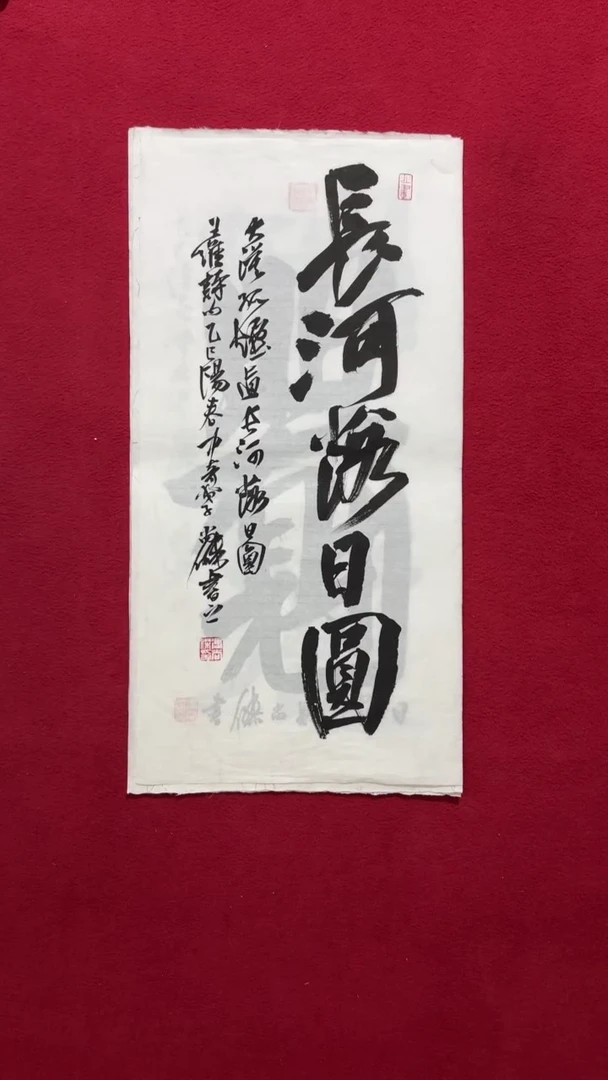 長河落日圓
大漠孤煙直長河落日圓
王維詩句乙巳陽春中
書